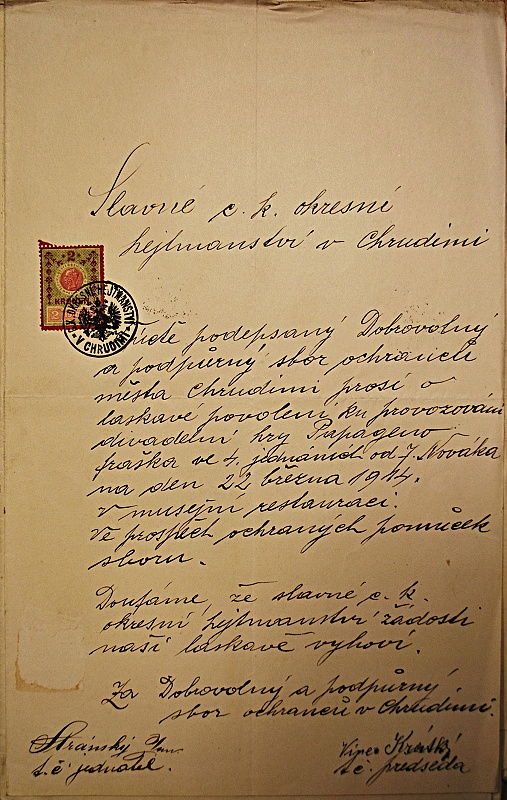 Slavné c. k. okresní
hejtmanství v Chrudimi
2
KORUN
2
C.K. OKRESNÍ HEJTMANSTVÍ
V CHRUDIMI
Uctě podepsaný Dobrovolný
a podpůrný sbor ochranců
města Chrudimi prosí o
laskavé povolení ku provozování
divadelní hry Papageno
fraška ve 4. jednáních od J. Nováka
na den 22 března 1914.
v musejní restauraci.
Ve prospěch ochraných pomůcek
sboru.
Doufáme, že slavné c. k.
okresní hejtmanství žádosti
naší laskavě vyhoví.
Za Dobrovolný a podpůrný
sbor ochranců v Chrudimi.
Stránský Jan
t. č. jednatel.
Krátký
t. č. předseda